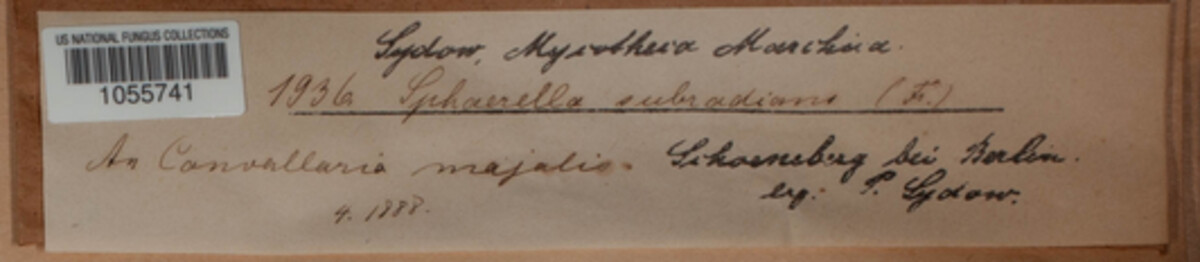 US NATIONAL FUNGUS COLLECTIONS
1055741
Sydow, Mycotheca Marchica.
1936 Sphaerella subradians (Fr.)
An Convallaria majalis. Schoeneberg bei Berlin.
4. 1888. leg: P. Sydow.